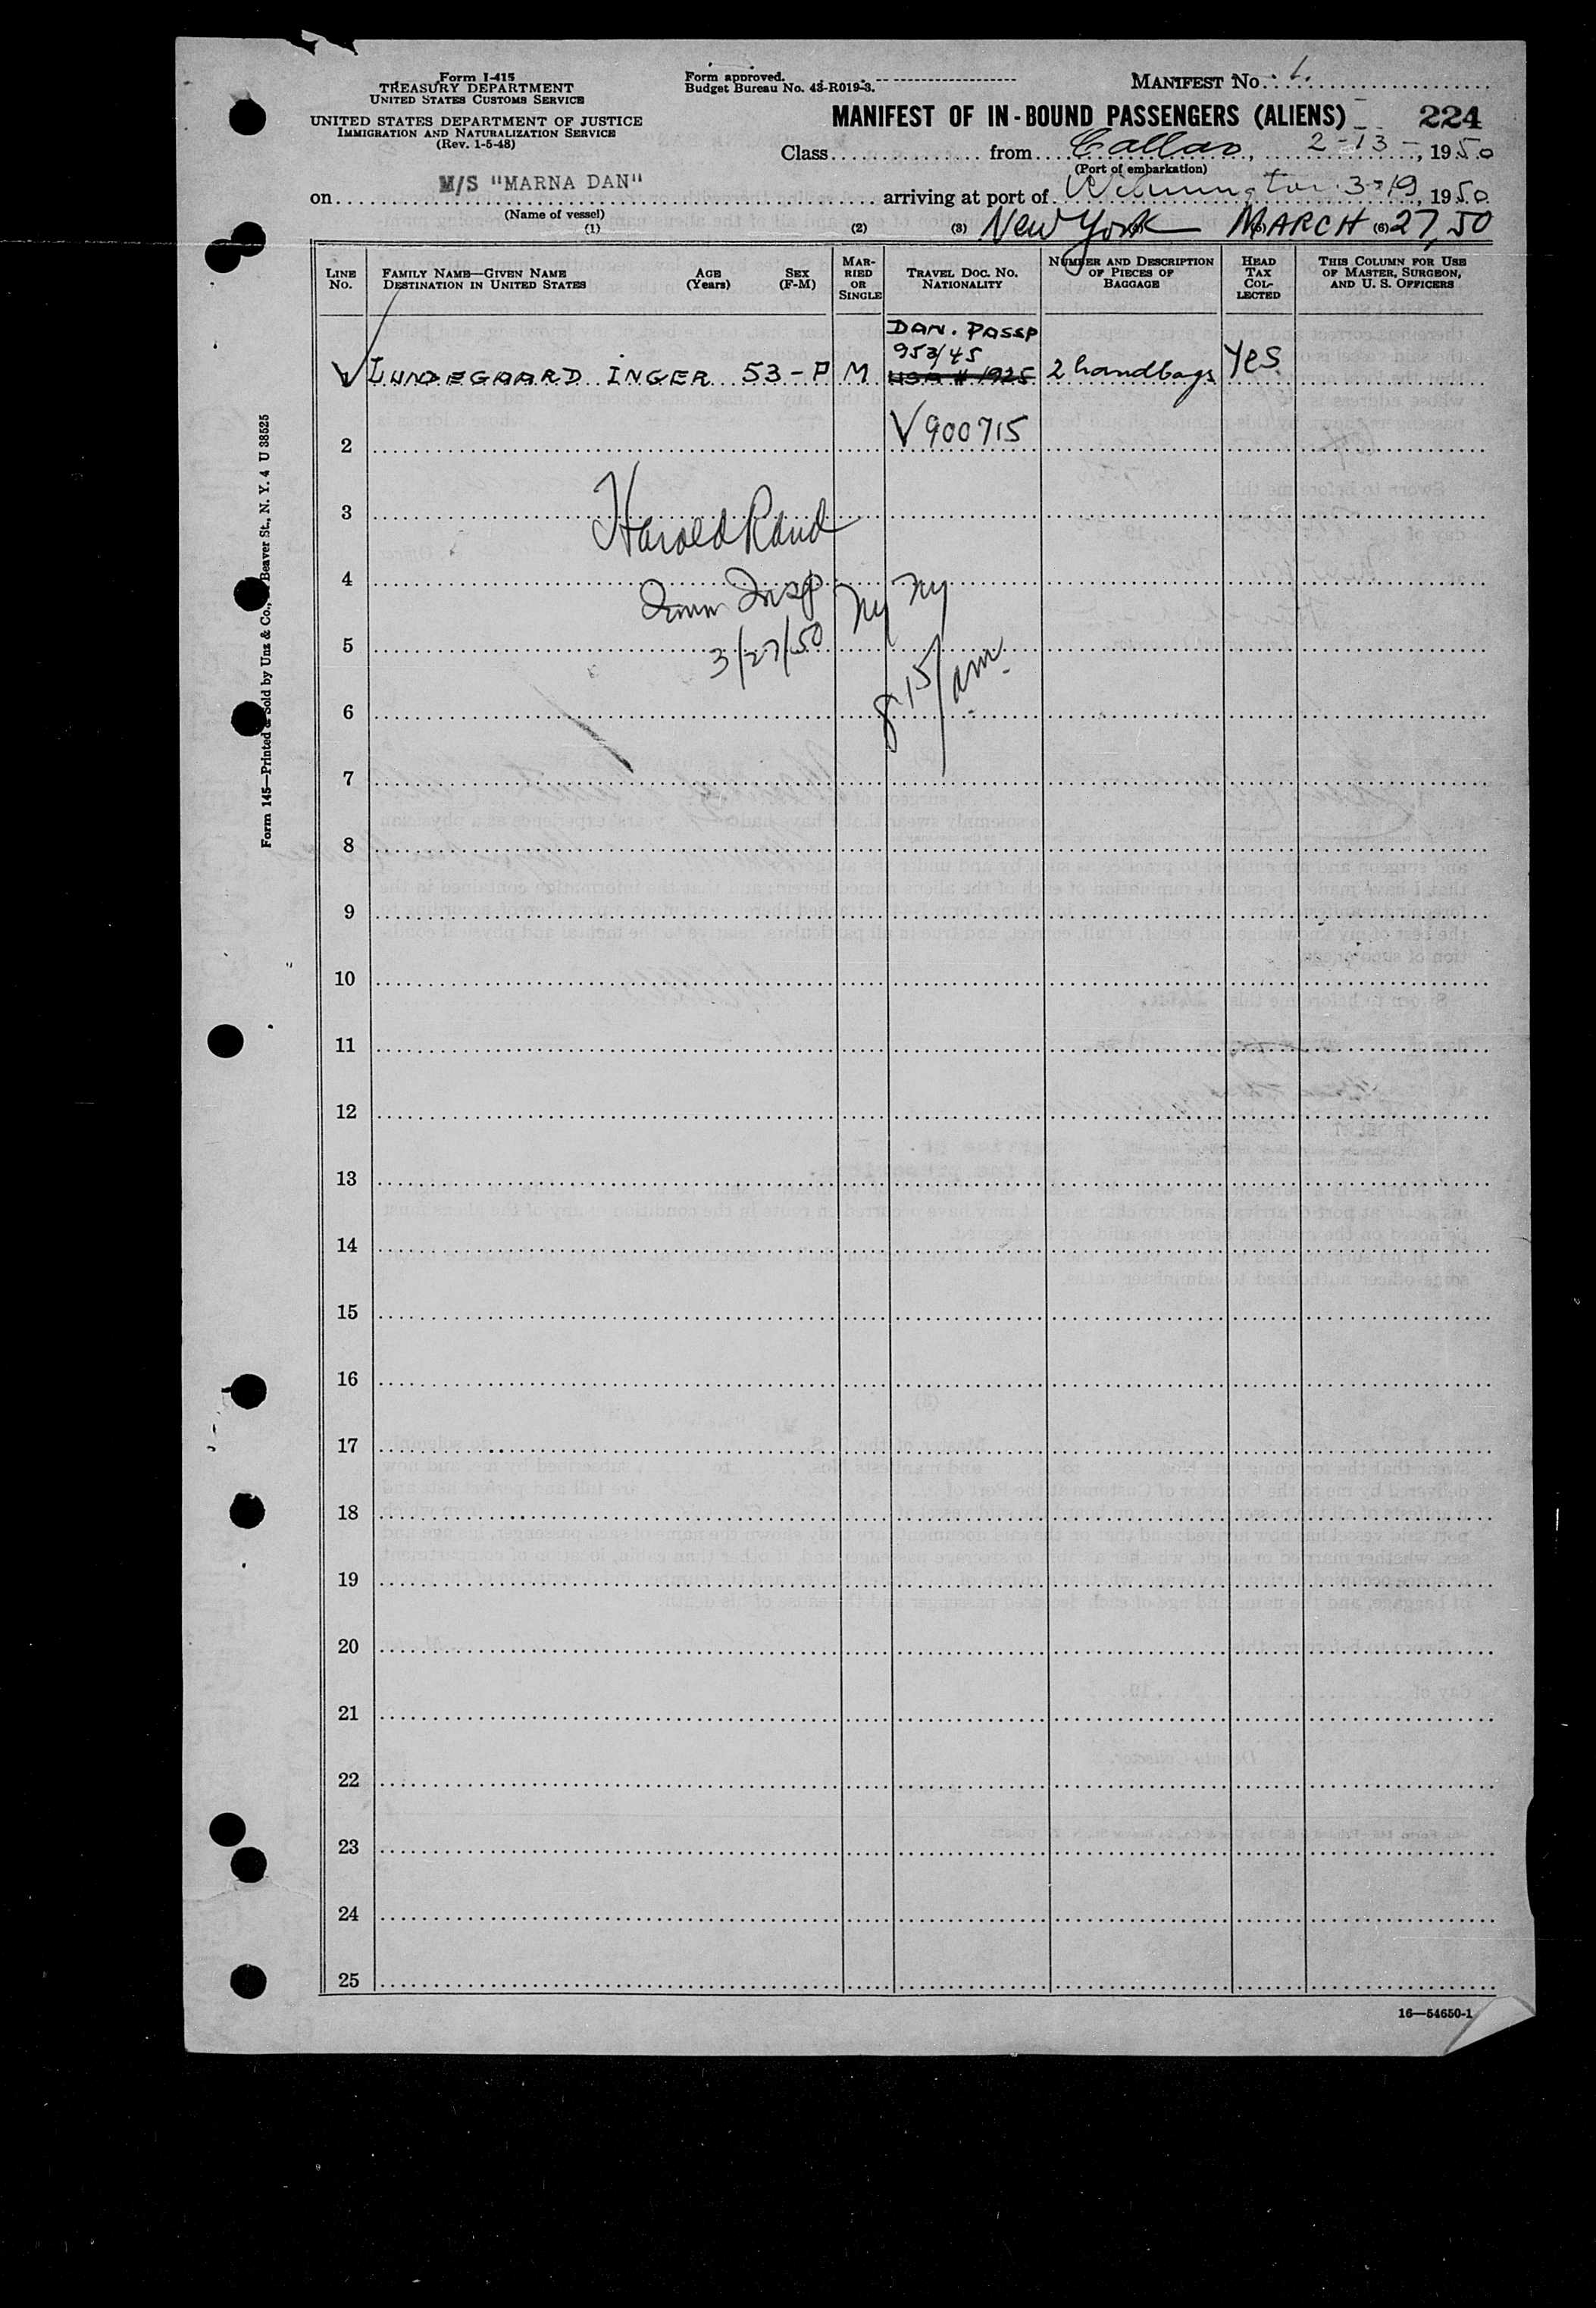 Form I-415
TREASURY DEPARTMENT
UNITED STATES CUSTOMS SERVICE
UNITED STATES DEPARTMENT OF JUSTICE
IMMIGRATION AND NATURALIZATION SERVICE
(Rev. 1-5-48)
Form approved.
Budget Bureau No. 43-R019-3.
MANIFEST No. 1.
MANIFEST OF IN-BOUND PASSENGERS (ALIENS) 224
Class from Callao, 2-13-, 1950
(Port of embarkation)
on M/S "MARNA DAN" arriving at port of Wilmington 3-19, 1950
(Name of vessel)
(1) (2) (3) New York MARCH (6) 27, 50
LINE No.
FAMILY NAME—GIVEN NAME
DESTINATION IN UNITED STATES
AGE (Years)
SEX (F-M)
MARRIED OR SINGLE
TRAVEL DOC. NO. NATIONALITY
NUMBER AND DESCRIPTION OF PIECES OF BAGGAGE
HEAD TAX COLLECTED
THIS COLUMN FOR USE OF MASTER, SURGEON, AND U. S. OFFICERS
DAN. PASSP
953/45
LUNDEGAARD INGER 53 - F M USA # 1925 2 handbags Yes
2 V900715
3 Harold Rand
4 Imm Insp NY NY
5 3/27/50
8 15/am.
6
7
8
9
10
11
12
13
14
15
16
17
18
19
20
21
22
23
24
25
16—54650-1
Form 145—Printed & Sold by Unz & Co., Beaver St., N. Y. 4 U 38525